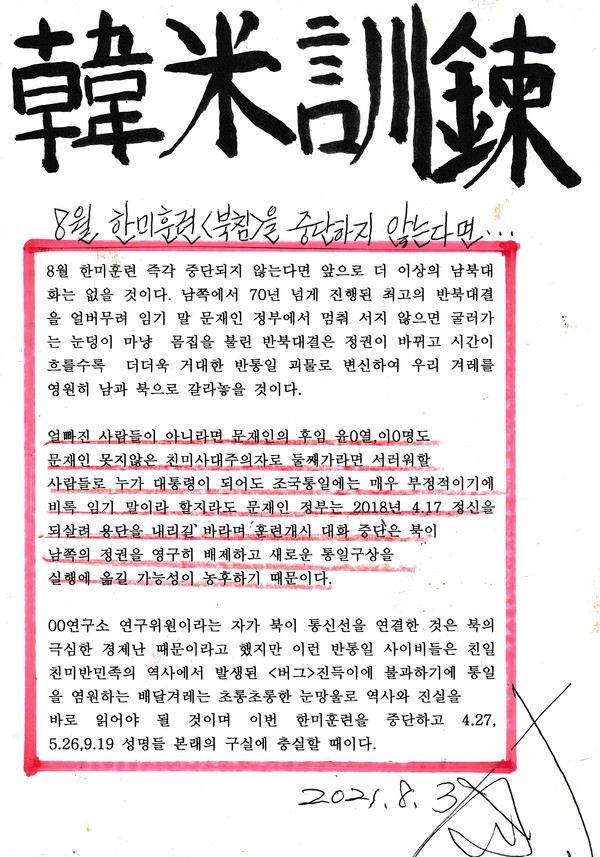 韓米訓鍊
8월 한미훈련<북침>을 중단하지 않는다면...
8월 한미훈련 즉각 중단되지 않는다면 앞으로 더 이상의 남북대
화는 없을 것이다. 남쪽에서 70년 넘게 진행된 최고의 반북대결
을 얼버무려 임기 말 문재인 정부에서 멈춰 서지 않으면 굴러가
는 눈덩이 마냥 몸집을 불린 반북대결은 정권이 바뀌고 시간이
흐를수록 더더욱 거대한 반통일 괴물로 변신하여 우리 겨레를
영원히 남과 북으로 갈라놓을 것이다.
얼빠진 사람들이 아니라면 문재인의 후임 윤0열,이0명도
문재인 못지않은 친미사대주의자로 둘째가라면 서러워할
사람들로 누가 대통령이 되어도 조국통일에는 매우 부정적이기에
비록 임기 말이라 할지라도 문재인 정부는 2018년 4.17 정신을
되살려 용단을 내리길 바라며 훈련개시 대화 중단은 북이
남쪽의 정권을 영구히 배제하고 새로운 통일구상을
실행에 옮길 가능성이 농후하기 때문이다.
00연구소 연구위원이라는 자가 북이 통신선을 연결한 것은 북의
극심한 경제난 때문이라고 했지만 이런 반통일 사이비들은 친일
친미반민족의 역사에서 발생된 <버그>진득이에 불과하기에 통일
을 염원하는 배달겨레는 초롱초롱한 눈망울로 역사와 진실을
바로 읽어야 될 것이며 이번 한미훈련을 중단하고 4.27,
5.26,9.19 성명들 본래의 구실에 충실할 때이다.
2021. 8. 3